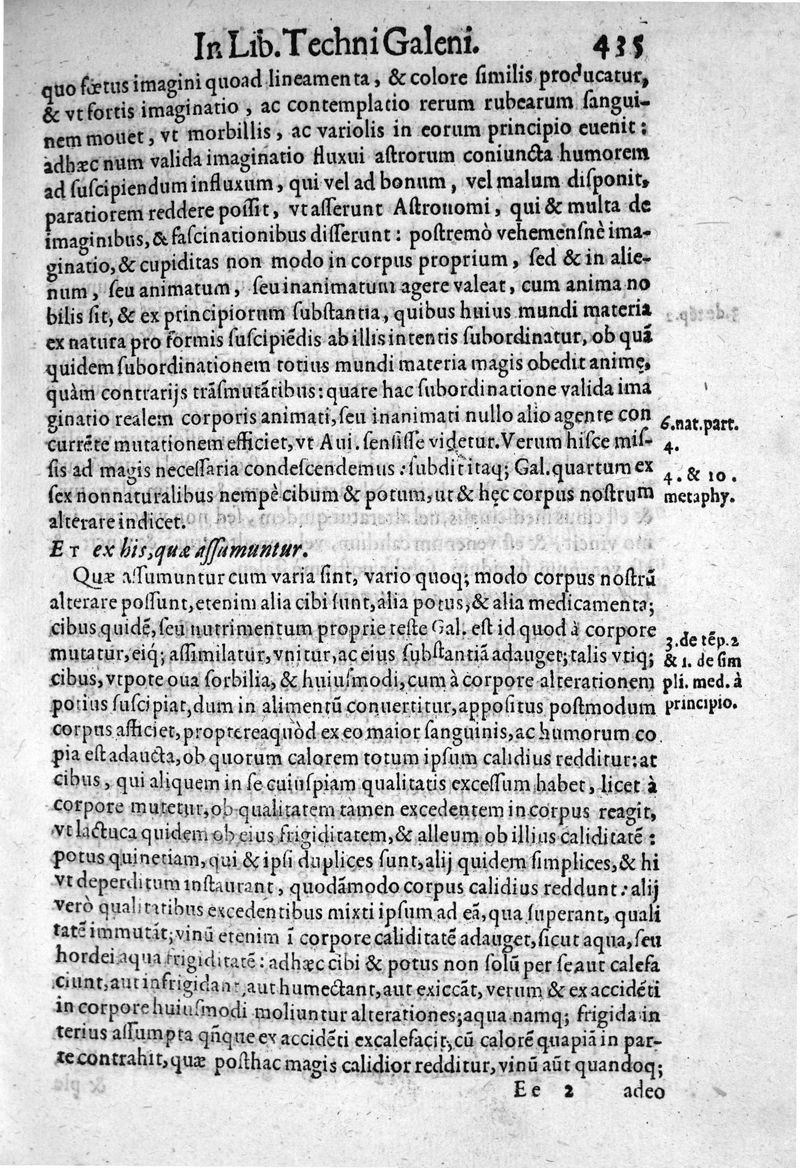 In Lib. Techni Galeni. 435
quo fœtus imagini quoad lineamenta, & colore ſimilis producatur,
& vt fortis imaginatio, ac contemplatio rerum rubearum ſangui-
nem mouet, vt morbillis, ac variolis in eorum principio euenit:
adhæc num valida imaginatio fluxui aſtrorum coniuncta humorem
ad ſuſcipiendum influxum, qui vel ad bonum, vel malum diſponit,
paratiorem reddere poſſit, vt aſſerunt Aſtronomi, qui & multa de
imaginibus, & faſcinationibus diſſerunt: poſtremò vehemenſnè ima-
ginatio, & cupiditas non modo in corpus proprium, ſed & in alie-
num, ſeu animatum, ſeu inanimatum agere valeat, cum anima no
bilis ſit, & ex principiorum ſubſtantia, quibus huius mundi materia
ex natura pro formis ſuſcipiēdis ab illis intentis ſubordinatur, ob quā
quidem ſubordinationem totius mundi materia magis obedit animę,
quàm contrarijs trāſmutātibus: quare hac ſubordinatione valida ima
ginatio realem corporis animati, ſeu inanimati nullo alio agente con
currēte mutationem efficiet, vt Aui. ſenſiſſe videtur. Verum hiſce miſ-
ſis ad magis neceſſaria condeſcendemus: ſubdit itaq; Gal. quartum ex
ſex nonnaturalibus nempè cibum & potum, ut & hęc corpus noſtrum
alterare indicet.
6. nat. part.
4.
4. & 10.
metaphy.
ET ex his, quæ aſſumuntur.
Quæ aſſumuntur cum varia ſint, vario quoq; modo corpus noſtrū
alterare poſſunt, etenim alia cibi ſunt, alia potus, & alia medicamenta;
cibus quidē, ſeu nutrimentum proprie teſte Gal. eſt id quod à corpore
mutatur, eiq́; aſſimilatur, vnitur, ac eius ſubſtantiā adauget; talis vtiq;
cibus, vtpote oua ſorbilia, & huiuſmodi, cum à corpore alterationem
potius ſuſcipiat, dum in alimentū conuertitur, appoſitus poſtmodum
corpus afficiet, proptereaquòd ex eo maior ſanguinis, ac humorum co
pia eſt adaucta, ob quorum calorem totum ipſum calidius redditur: at
cibus, qui aliquem in ſe cuiuſpiam qualitatis exceſſum habet, licet à
corpore mutetur, ob qualitatem tamen excedentem in corpus reagit,
vt lactuca quidem ob eius frigiditatem, & alleum ob illius caliditatē:
potus quinetiam, qui & ipſi duplices ſunt, alij quidem ſimplices, & hi
vt deperditum inſtaurant, quodāmodo corpus calidius reddunt: alij
verò qualitatibus excedentibus mixti ipſum ad eā, qua ſuperant, quali
tatē immutāt; vinū etenim ī corpore caliditatē adauget, ſicut aqua, ſeu
hordei aqua frigiditatē: adhæc cibi & potus non ſolū per ſe aut calefa
ciunt, aut infrigidant, aut humectant, aut exiccāt, verum & ex accidēti
in corpore huiuſmodi moliuntur alterationes; aqua namq; frigida in
terius aſſumpta qn̄que ex accidēti excalefacit, cū calorē quapiā in par-
te contrahit, quæ poſthac magis calidior redditur, vinū aūt quandoq;
3. de tēp. 2
& 1. de ſim
pli. med. à
principio.
Ee 2 adeo